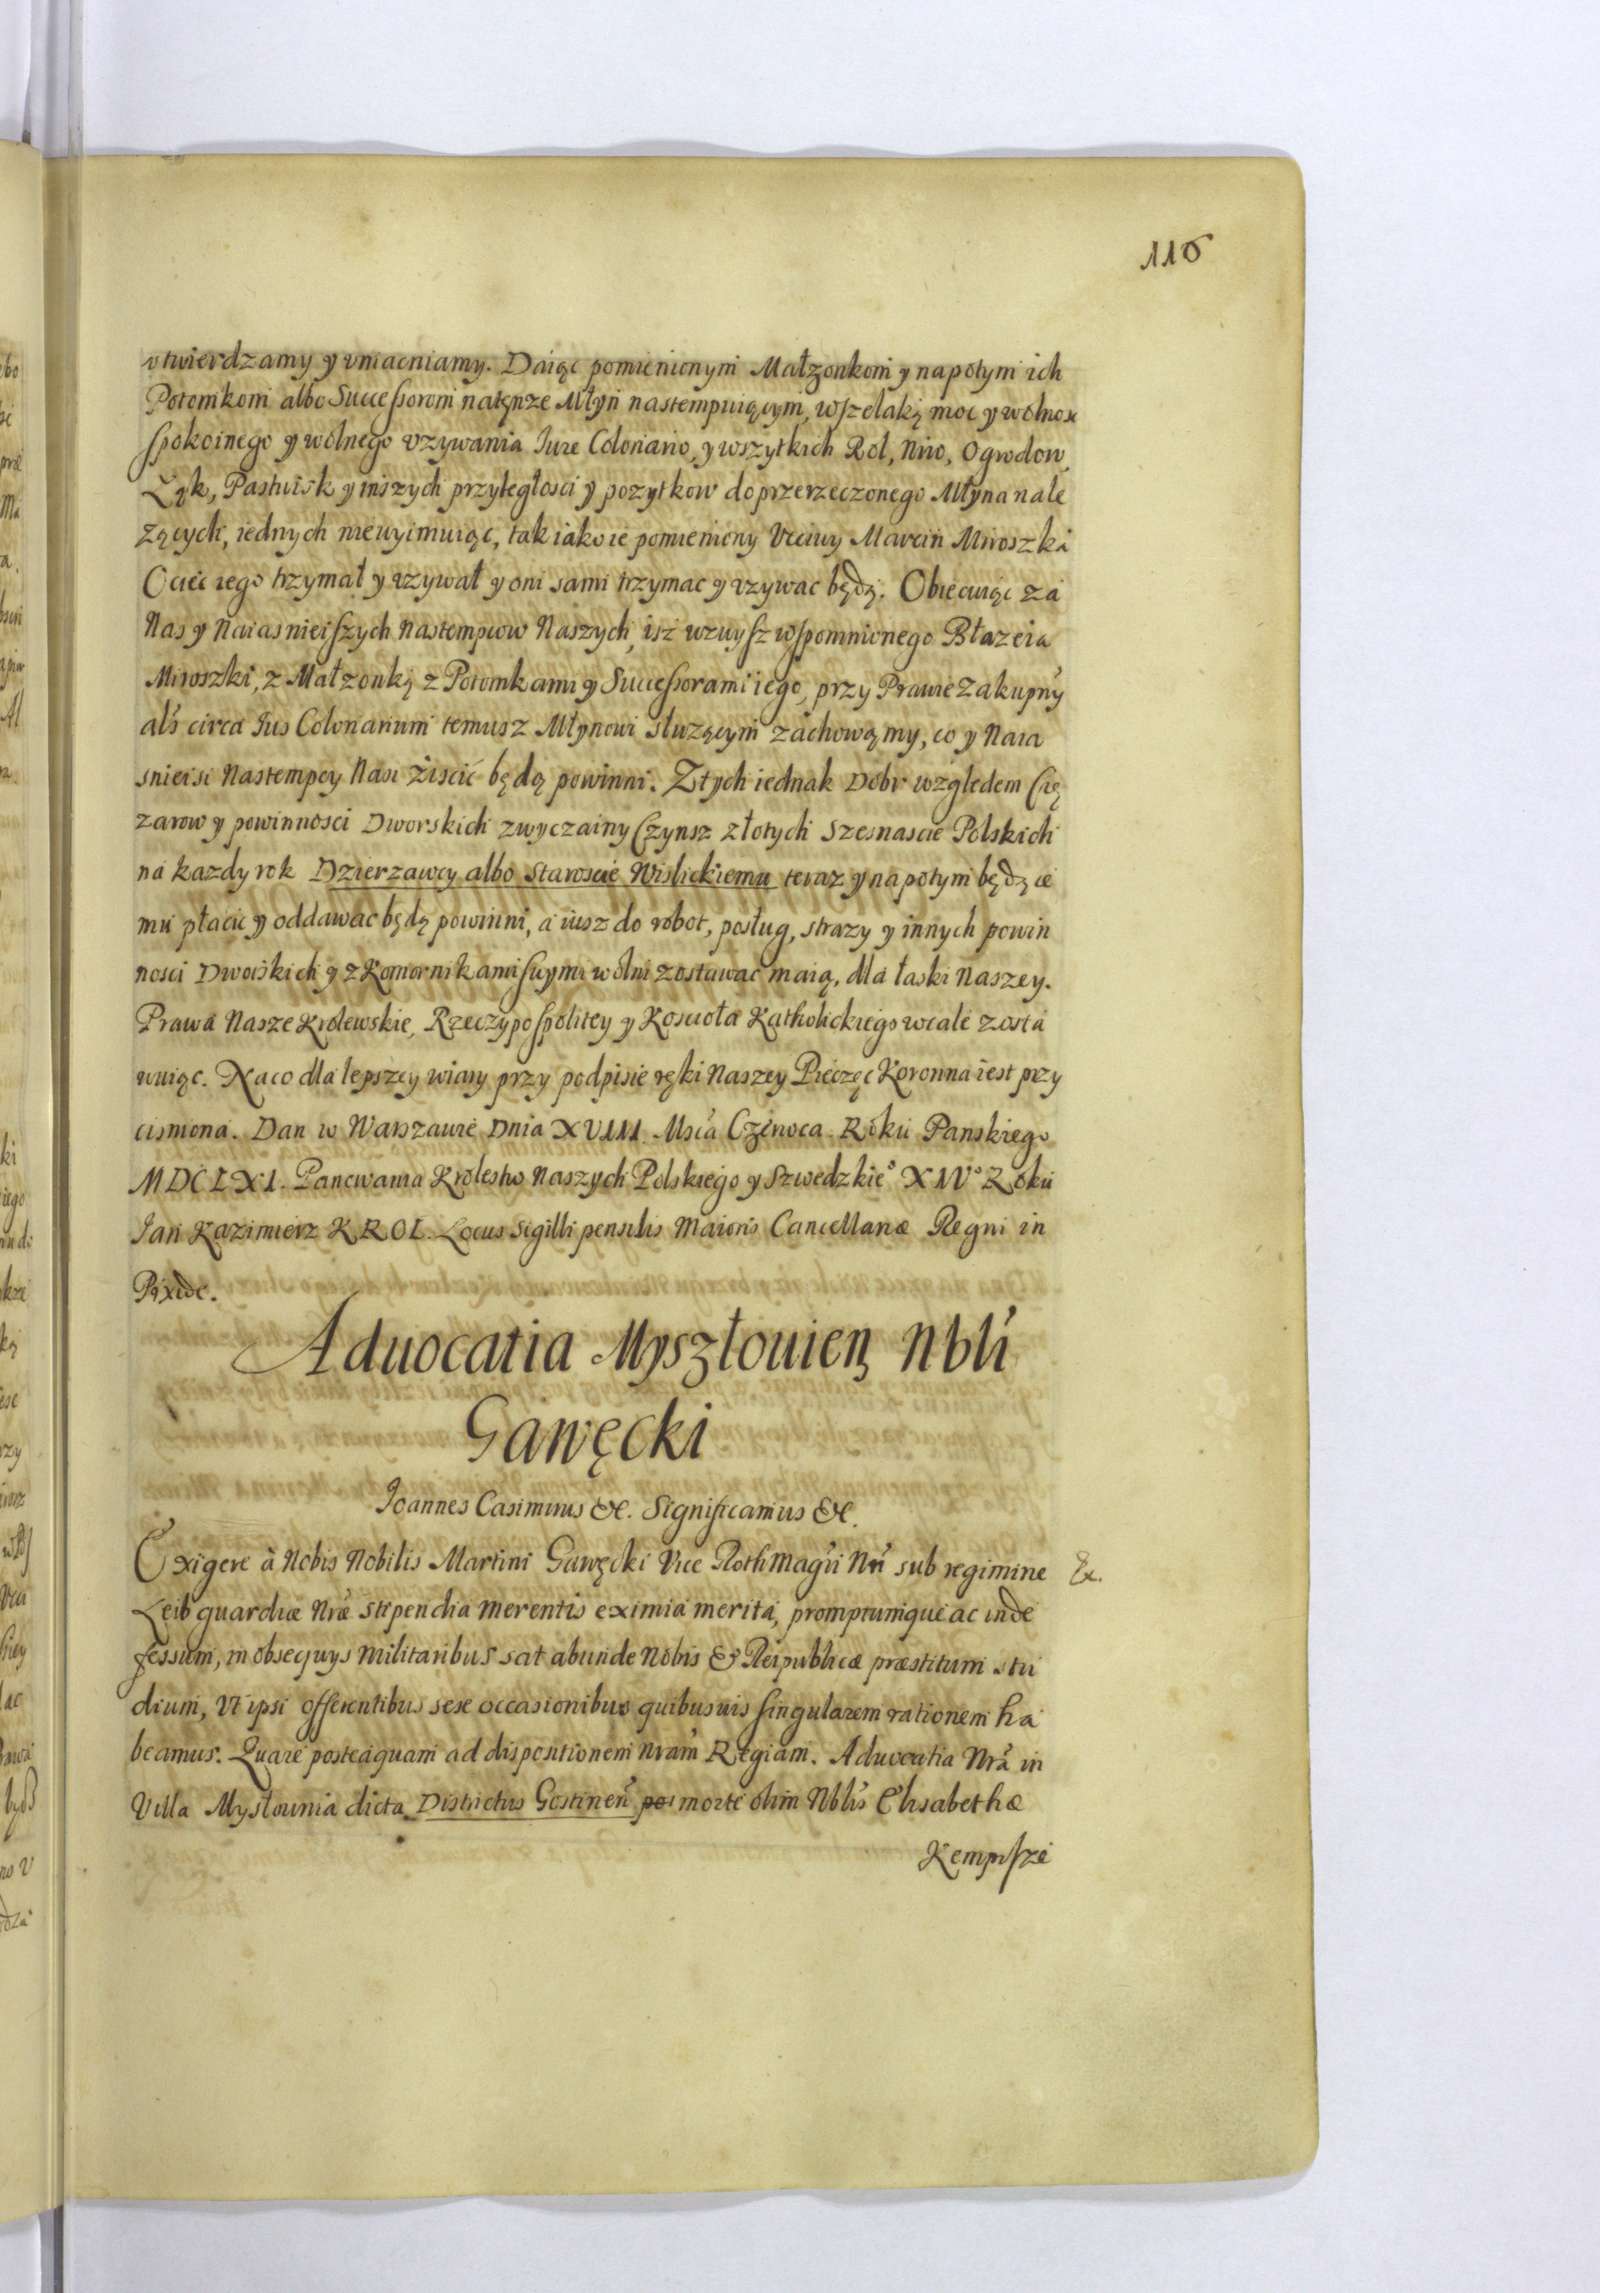 116
vtwierdzamy y vmacniamy. Daiąc pomienionym Małzonkom y napotym ich
Potomkom albo Successorom natęnze Młyn nastempuiącym, wszelaką moc y wolnosc
spokoinego y wolnego vzywania Iure Colonario, y wszytkich Rol, Niw, Ogrodow,
Łąk, Pastwisk y inszych przyległosci y pozytkow doprzerzeczonego Młyna nale
zących, iednych niewyimuiąc, tak iako ie pomieniony Vcciwy Marcin Miroszka
Ociec iego trzymał y vzywał y oni sami trzymac y vzywac będą. Obiecuiąc za
Nas y Naiasnieiszych Nastempcow Naszych, isz wzwysz wspomnionego Błazeia
Miroszki, z Małzonką z Potomkami y Successorami iego, przy Prawie Zakupny
als circa Ius Colonarium temusz Młynowi słuzącym zachowamy, co y Naia
snieisi Nastempcy Nasi ziscić będą powinni. Ztych iednak Dobr względem Cię
zarow y powinnosci Dworskich zwyczainy Czynsz złotych szesnascie Polskich
na kazdy rok Dzierzawcy albo Staroscie Wislickiemu teraz y napotym będące
mu płacic y oddawac będą powinni, a iusz do robot, posług, strazy y innych powin
nosci Dworskich y z Komornikami swymi wolni zostawac maią, dla łaski Naszey.
Prawa Nasze Krolewskie, Rzeczypospolitey y Koscioła Katholickiego wcale zosta
wuiąc. Naco dla lepszey wiary przy podpisie ręki Naszey Pieczęc Koronna iest przy
cisniona. Dan w Warszawie Dnia XVIII. Msca Czerwca Roku Panskiego
MDCLXI. Panowania Krolestw Naszych Polskiego y Szwedzkieº XIVº Roku
Jan Kazimierz KROL. Locus Sigilli pensilis Maioris Cancellariæ Regni in
Pixide.
Aduocatia Myszłouien Nbli
Gawęcki
Joannes Casimirus &c. Significamus &c.
Exigere à Nobis Nobilis Martini Gawęcki Vice Rothmagri Nri sub regimine Ex.
Leib guardiæ Nræ stipendia merentis eximia merita, promptumque ac inde
fessum, in obsequys militaribus sat abunde Nobis & Reipublicæ præstitum stu
dium, Vt ipsi offerentibus sese occasionibus quibusuis singularem rationem ha
beamus. Quare posteaquam ad dispositionem Nram Regiam. Aduocatia Nra in
Villa Mysłounia dicta Districtus Gostinen post morte olim Nblis Elisabethæ